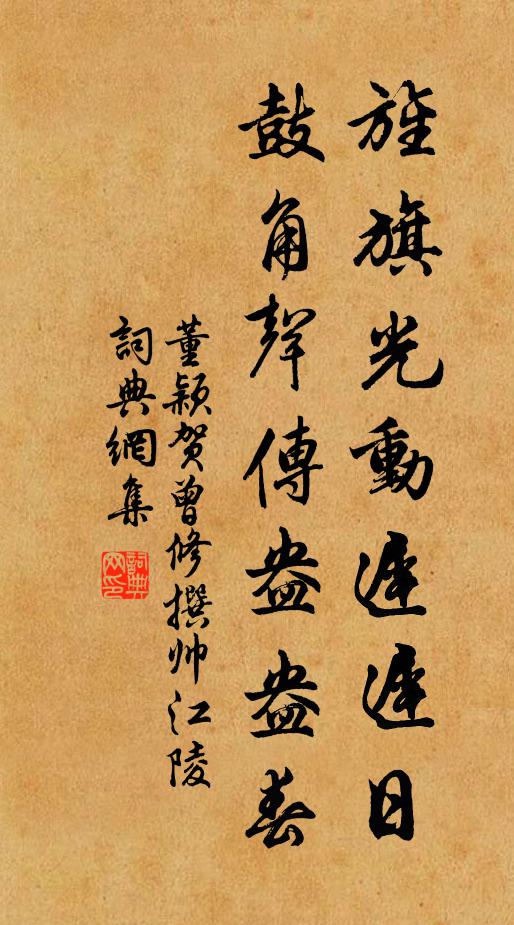 旌旗光動遲遲日
鼓角聲傳盎盎春
董潁賀曾修撰帅江陵
詞典網集
詞典
网印